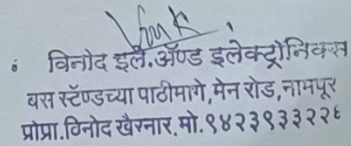 विनोद इले.ॲण्ड इलेक्ट्रोनिक्स
बस स्टॅण्डच्या पाठीमागे,मेन रोड,नामपूर
प्रोप्रा.विनोद खैरनार.मो.९४२३९३३२२६